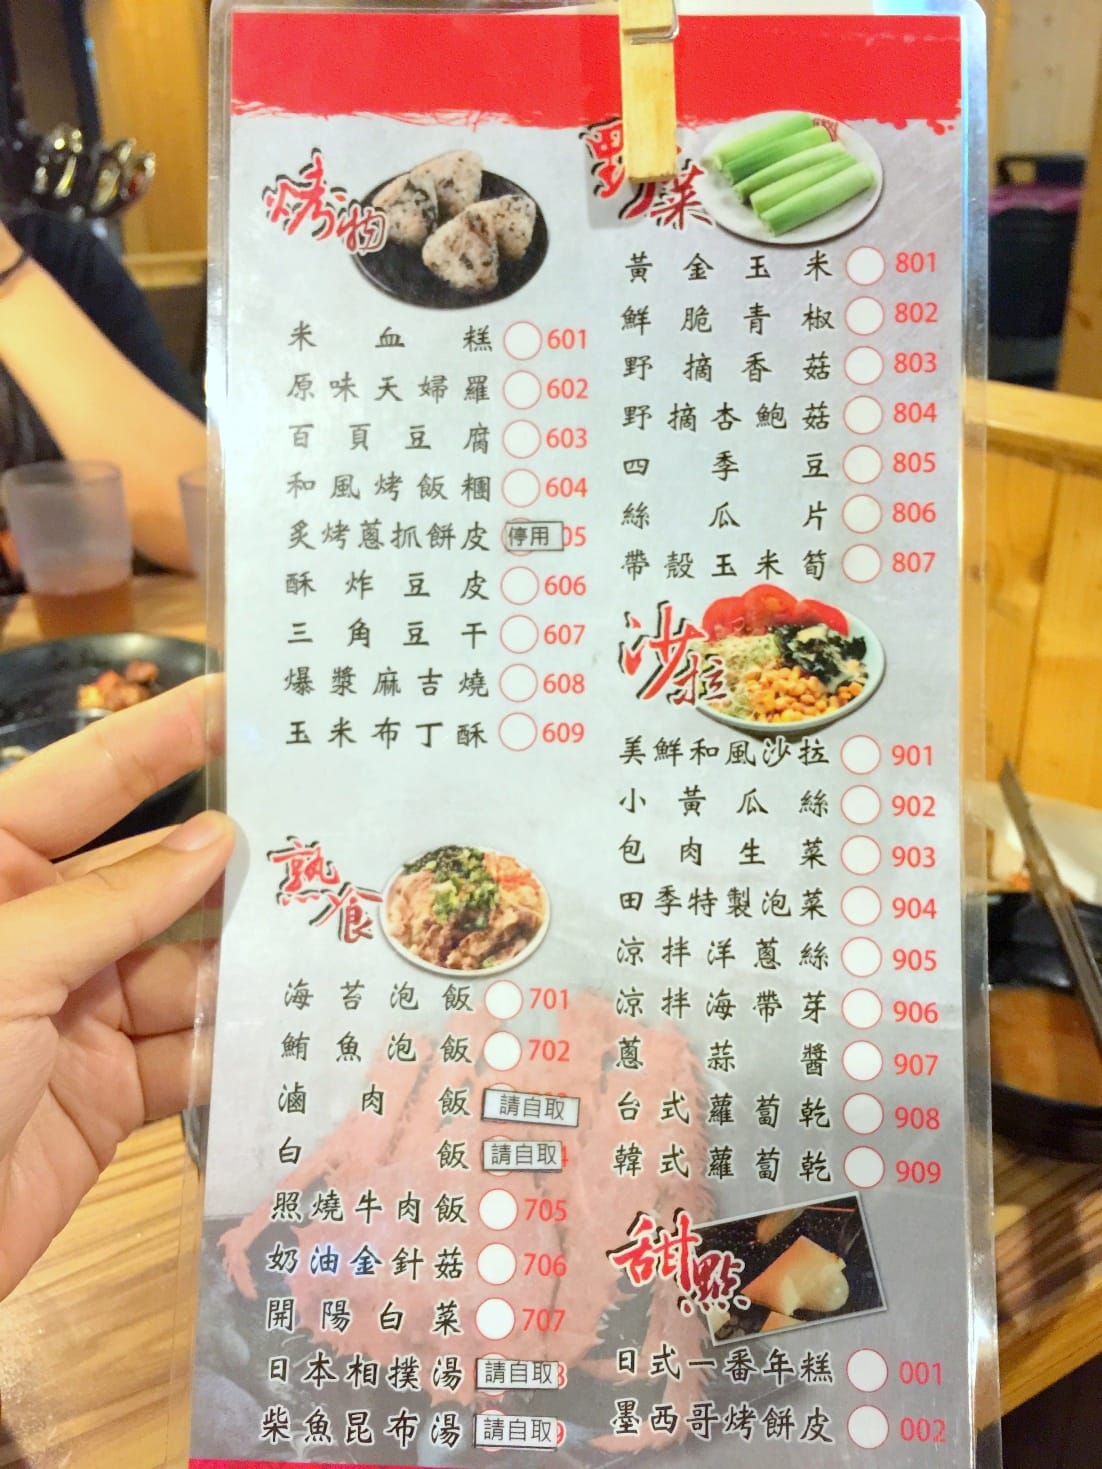 烤物
米血糕 601
原味天婦羅 602
百頁豆腐 603
和風烤飯糰 604
炙烤蔥抓餅皮 停用 05
酥炸豆皮 606
三角豆干 607
爆漿麻吉燒 608
玉米布丁酥 609
熟食
海苔泡飯 701
鮪魚泡飯 702
滷肉飯 請自取
白飯 請自取 4
照燒牛肉飯 705
奶油金針菇 706
開陽白菜 707
日本相撲湯 請自取 8
柴魚昆布湯 請自取 9
野菜
黃金玉米 801
鮮脆青椒 802
野摘香菇 803
野摘杏鮑菇 804
四季豆 805
絲瓜片 806
帶殼玉米筍 807
沙拉
美鮮和風沙拉 901
小黃瓜絲 902
包肉生菜 903
田季特製泡菜 904
涼拌洋蔥絲 905
涼拌海帶芽 906
蔥蒜醬 907
台式蘿蔔乾 908
韓式蘿蔔乾 909
甜點
日式一番年糕 001
墨西哥烤餅皮 002